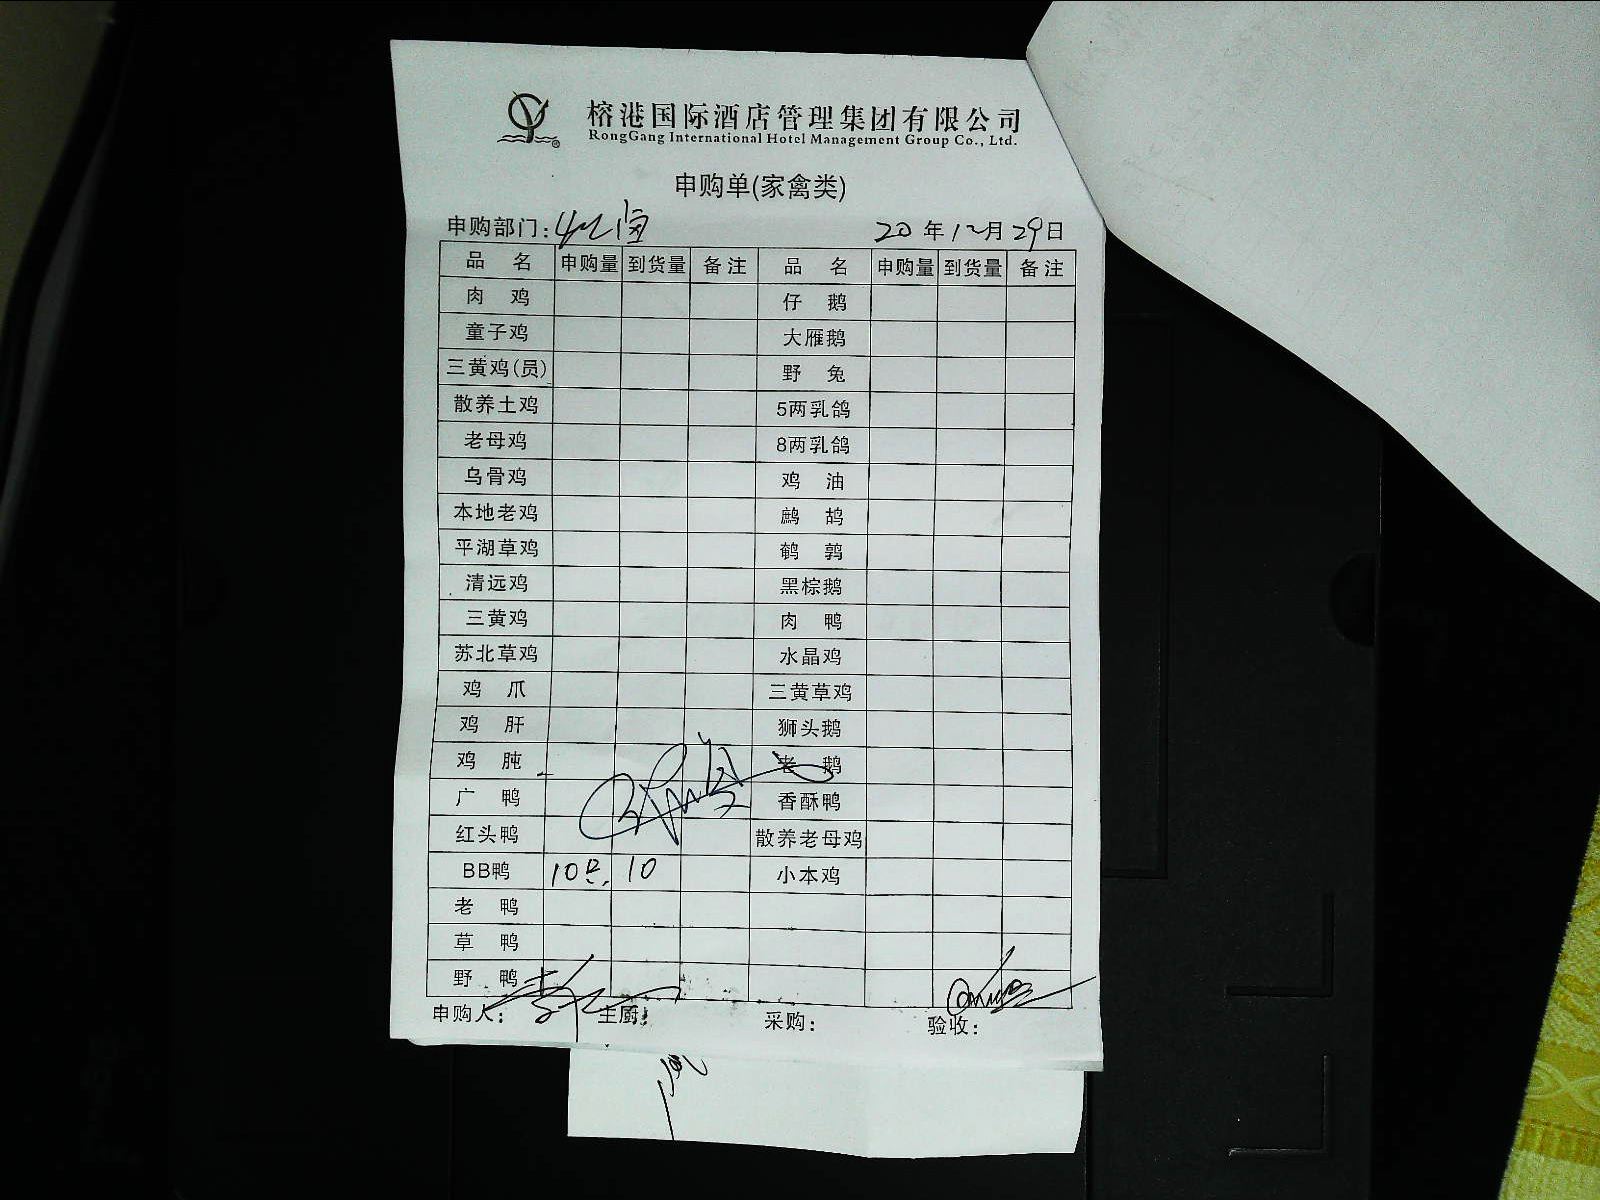 榕港国际酒店管理集团有限公司
RongGang International Hotel Management Group Co., Ltd.
申购单(家禽类)
申购部门: 20 年 12 月 29 日
品 名 申购量 到货量 备注 品 名 申购量 到货量 备注
肉 鸡 仔 鹅
童子鸡 大雁鹅
三黄鸡(员) 野 兔
散养土鸡 5两乳鸽
老母鸡 8两乳鸽
乌骨鸡 鸡 油
本地老鸡 鹧 鸪
平湖草鸡 鹌 鹑
清远鸡 黑棕鹅
三黄鸡 肉 鸭
苏北草鸡 水晶鸡
鸡 爪 三黄草鸡
鸡 肝 狮头鹅
鸡 肫 老 鹅
广 鸭 香酥鸭
红头鸭 散养老母鸡
BB鸭 10只. 10 小本鸡
老 鸭
草 鸭
野 鸭
申购人: 主厨: 采购: 验收: